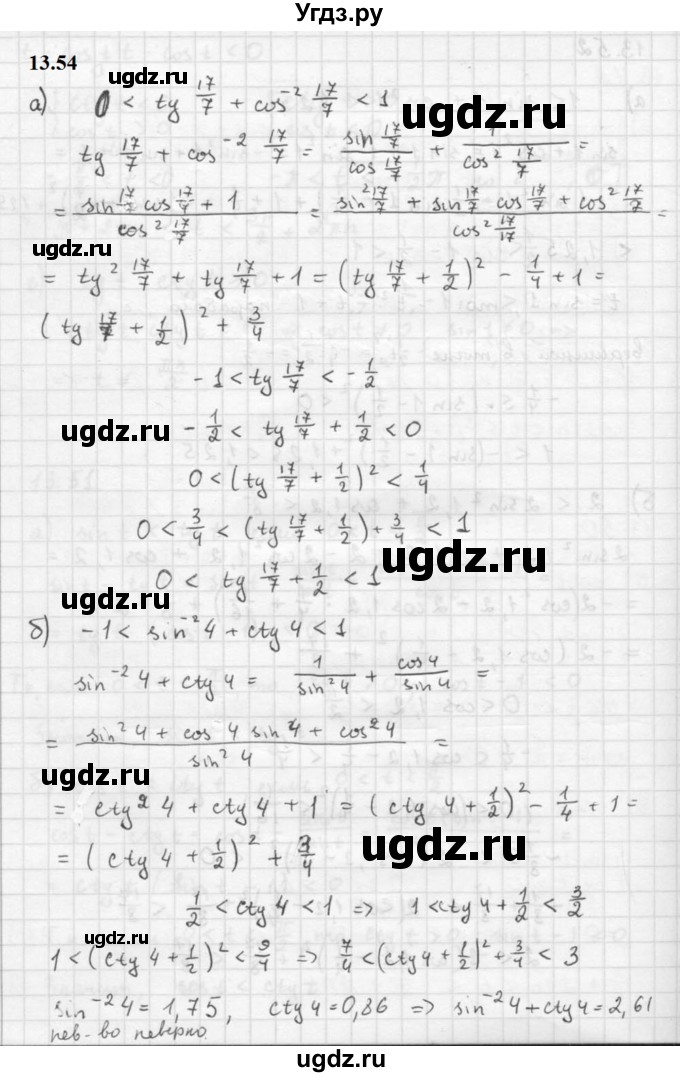 Угдз.ру
13.54
ugdz.ru
а) 0 < tg 17/7 + cos⁻² 17/7 < 1
ugdz.ru
tg 17/7 + cos⁻² 17/7 = sin 17/7 / cos 17/7 + 1 / cos² 17/7 =
= sin 17/7 cos 17/7 + 1 / cos² 17/7 = sin² 17/7 + sin 17/7 cos 17/7 + cos² 17/7 / cos² 17/17 =
ugdz.ru
= tg² 17/7 + tg 17/7 + 1 = (tg 17/7 + 1/2)² - 1/4 + 1 =
(tg 17/7 + 1/2)² + 3/4
-1 < tg 17/7 < -1/2
ugdz.ru
-1/2 < tg 17/7 + 1/2 < 0
0 < (tg 17/7 + 1/2)² < 1/4
0 < 3/4 < (tg 17/7 + 1/2) + 3/4 < 1
ugdz.ru
0 < tg 17/7 + 1/2 < 1
ugdz.ru
б) -1 < sin⁻² 4 + ctg 4 < 1
sin⁻² 4 + ctg 4 = 1 / sin² 4 + cos 4 / sin 4 =
= sin² 4 + cos 4 sin 4 + cos² 4 / sin² 4 =
ugdz.ru
= ctg² 4 + ctg 4 + 1 = (ctg 4 + 1/2)² - 1/4 + 1 =
= (ctg 4 + 1/2)² + 3/4
ugdz.ru
1/2 < ctg 4 < 1 => 1 < ctg 4 + 1/2 < 3/2
ugdz.ru
1 < (ctg 4 + 1/2)² < 9/4 => 7/4 < (ctg 4 + 1/2)² + 3/4 < 3
sin⁻² 4 = 1,75, ctg 4 = 0,86 => sin⁻² 4 + ctg 4 = 2,61
нев-во неверно.
ugdz.ru